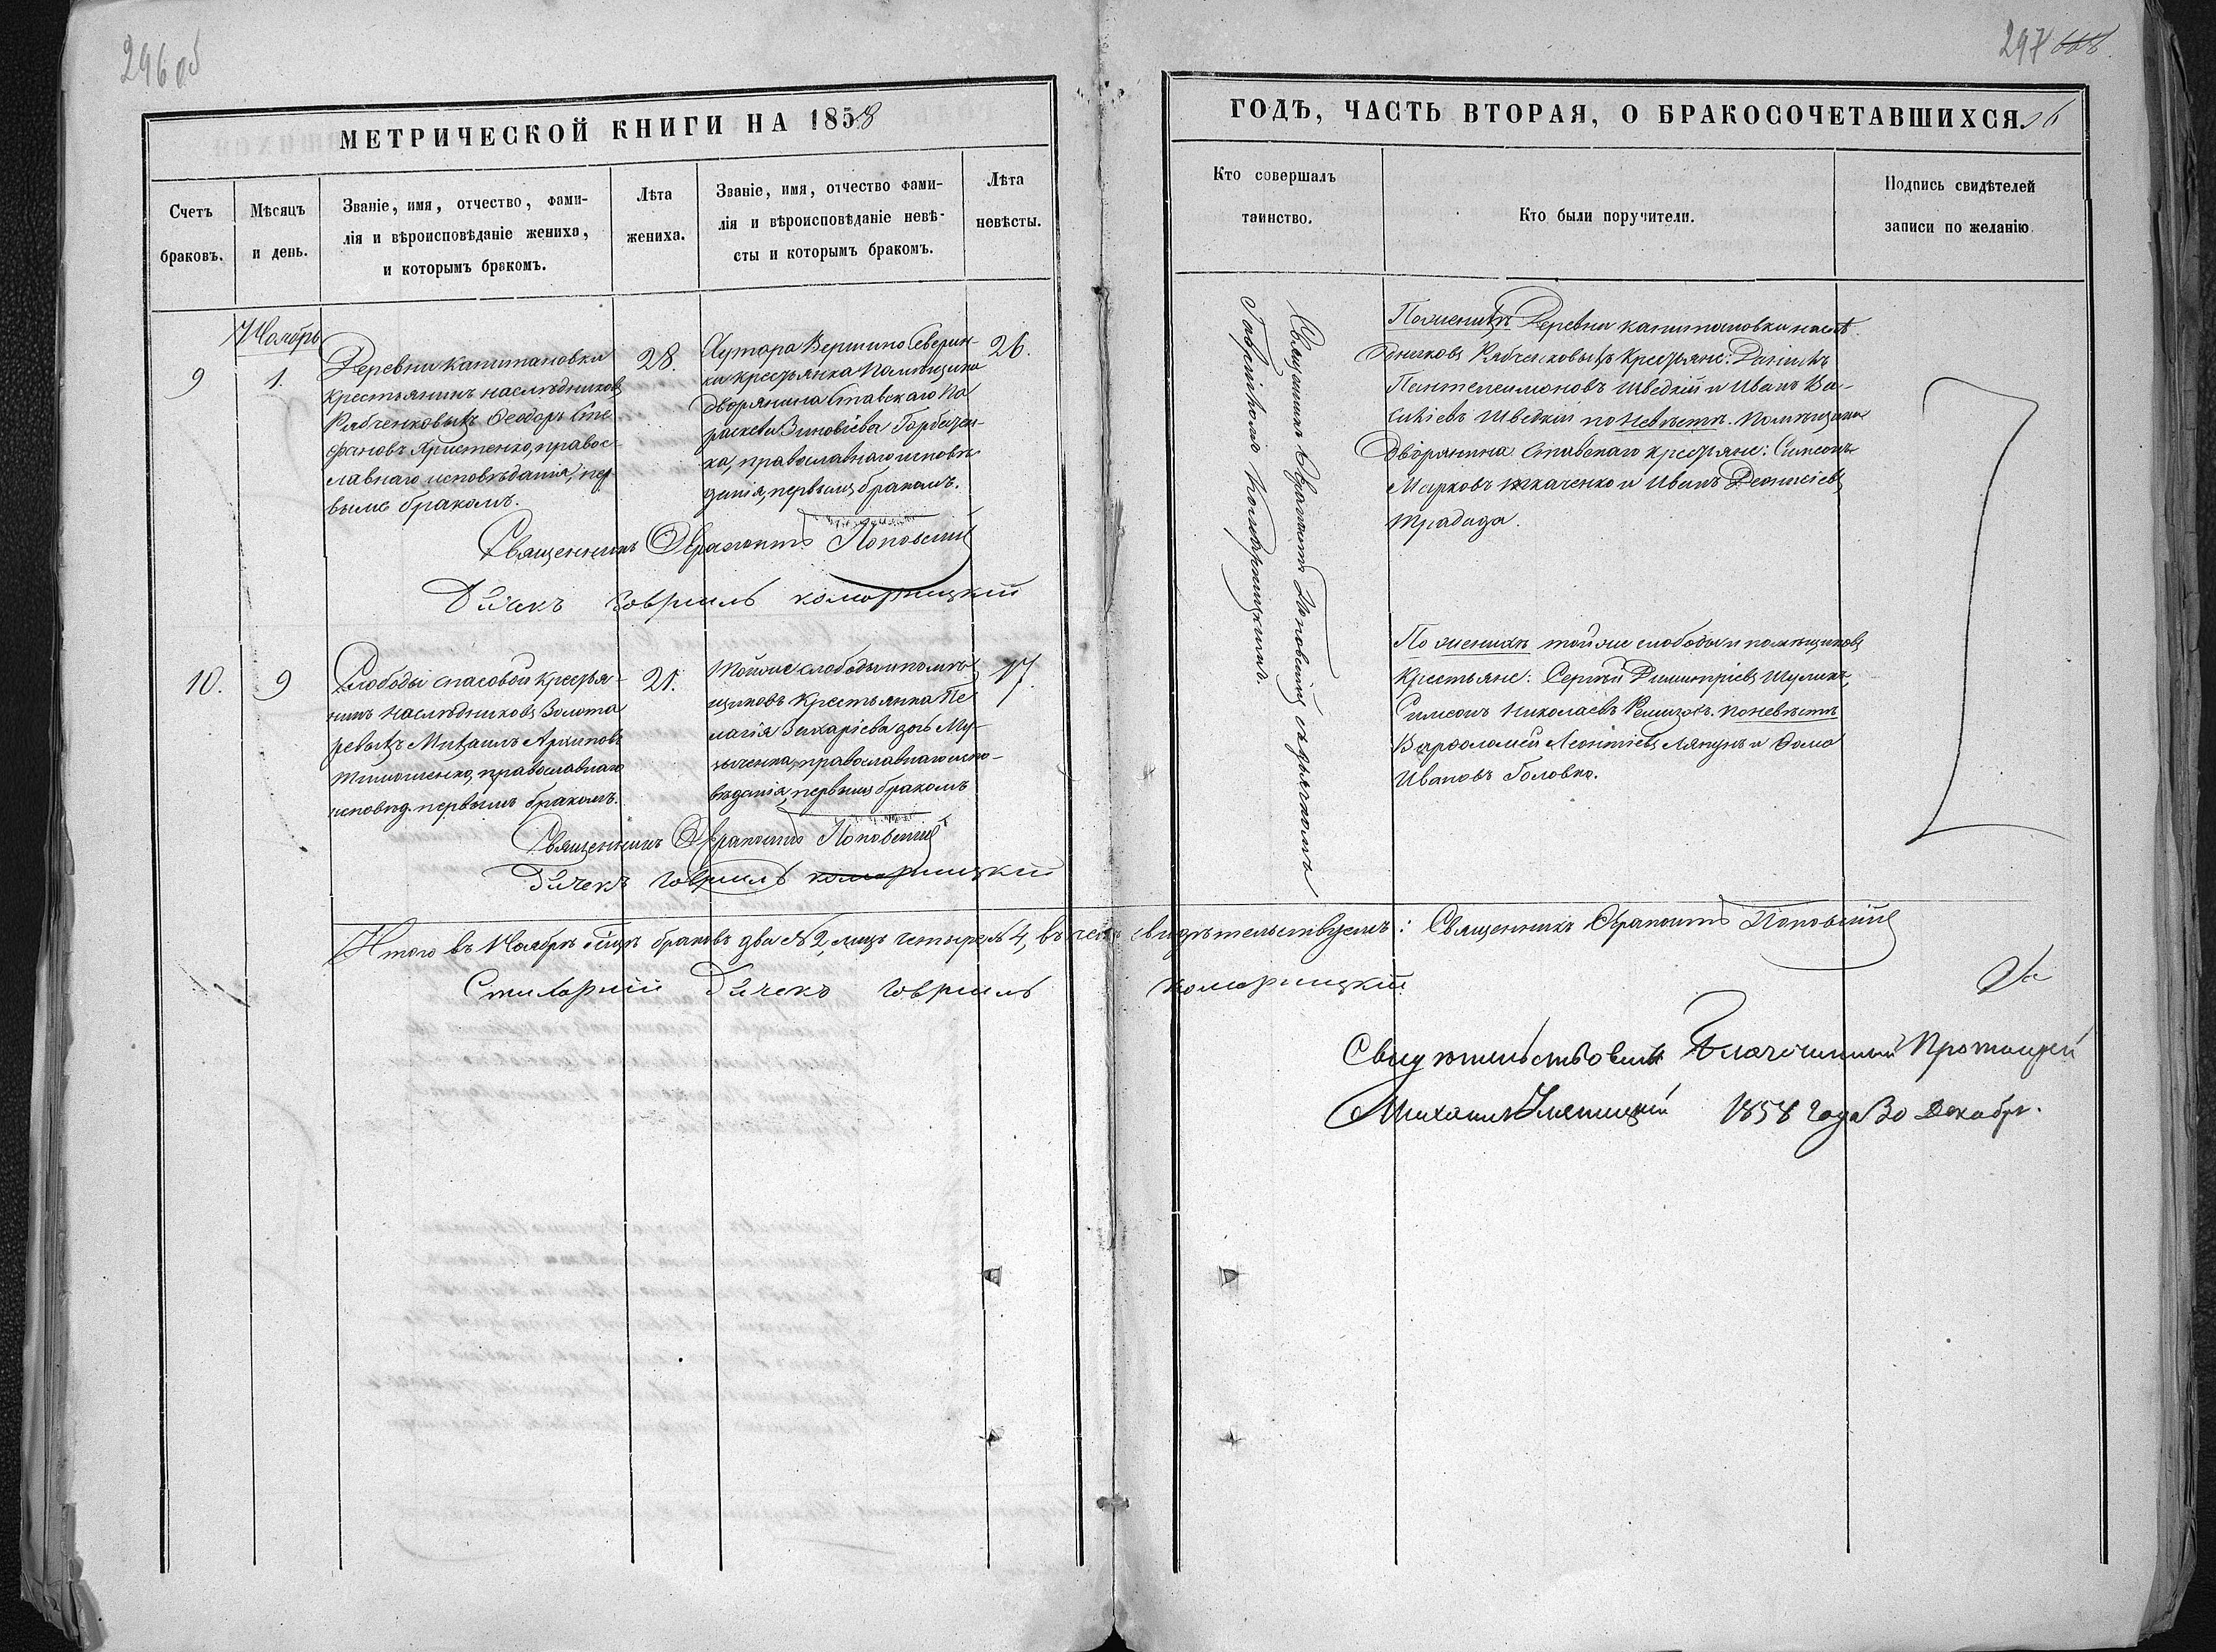 296 об
МЕТРИЧЕСКОЙ КНИГИ НА 1858
Счетъ
браковъ.
Мѣсяцъ
и день.
Званіе, имя, отчество, фами-
лія и вѣроисповѣданіе жениха,
и которымъ бракомъ.
Лѣта
жениха.
Званіе, имя, отчество фами-
лія и вѣроисповѣданіе невѣ-
сты и которымъ бракомъ.
Лѣта
невѣсты.
Ноябрь
9
1.
Деревни Капитановки
крестьянинъ наслѣдниковъ
Рябченковыхъ Феодоръ Сте
фановъ Христенко, правос-
лавнаго исповѣданія, пер
вымъ бракомъ.
28.
Хутора Вершино Северин-
ки крестьянка помѣщика
дворянина Ставскаго Па
раскева Зиновіева Горбачен-
ка, православнаго исповѣ
данія, первымъ бракомъ.
26.
Священникъ Ферапонтъ Поповскій
Дьячекъ Гавріилъ Комарницкій
10.
9
Слободы Спасовой крестья-
нинъ наслѣдниковъ Золота
ревыхъ Михаилъ Архиповъ
Тимошенко, православнаго
исповѣд. первымъ бракомъ.
21.
Той же слободы и помѣ
щиковъ крестьянка Пе
лагія Захаріева дочь Му-
зыченка, православнаго испо-
вѣданія, первымъ бракомъ
17.
Священникъ Ферапонтъ Поповскій
Дьячекъ Гавріилъ Комарницкій
Итого въ Ноябрѣ мѣсяцѣ браковъ два № 2, лицъ четыре № 4, въ чемъ свидѣтельствуемъ: Священникъ Ферапонтъ Поповскій
Стихарный Дьячекъ Гавріилъ Комарницкій
297 668
ГОДЪ, ЧАСТЬ ВТОРАЯ, О БРАКОСОЧЕТАВШИХСЯ.
Кто совершалъ
таинство.
Кто были поручители.
Подпись свидѣтелей
записи по желанію
Священникъ Ферапонтъ Поповскій съ дьячкомъ
Гавріиломъ Комарницкимъ.
По женихѣ Деревни Капитановки наслѣ
дниковъ Рябченковыхъ крестьяне: Даніилъ
Пантелеимоновъ Шведкій и Иванъ Ва-
силіевъ Шведкій по невѣстѣ. помѣщика
дворянина Ставскаго крестьяне: Симеонъ
Марковъ Ткаченко и Иванъ Деонисіевъ
Трабада.
По женихѣ той же слободы и помѣщиковъ
крестьяне: Сергѣй Димитріевъ Шулика,
Симеонъ Николаевъ Ремизовъ. по невѣстѣ
Варфоломей Леонтіевъ Ляпунъ и Фома
Ивановъ Головко.
Свидѣтельствовалъ Благочинный Протоіерей
Михаилъ 1858 года 30 Декабр.